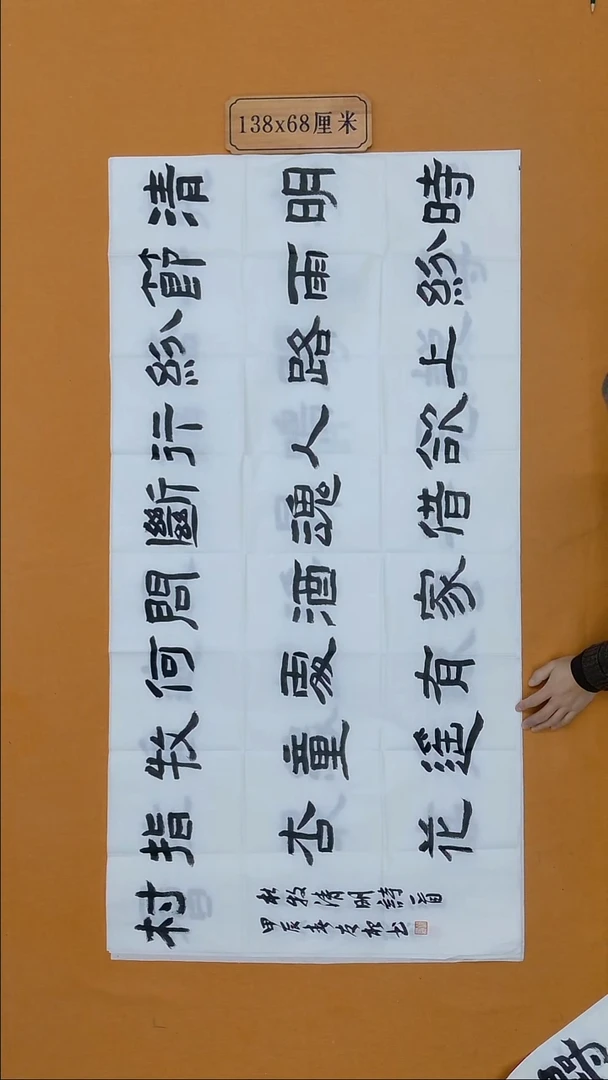 138x68厘米
清明時
節雨紛
紛路上
行人欲
斷魂借
問酒家
何處有
牧童遥
指杏花
村
杜牧清明詩一首
甲辰春